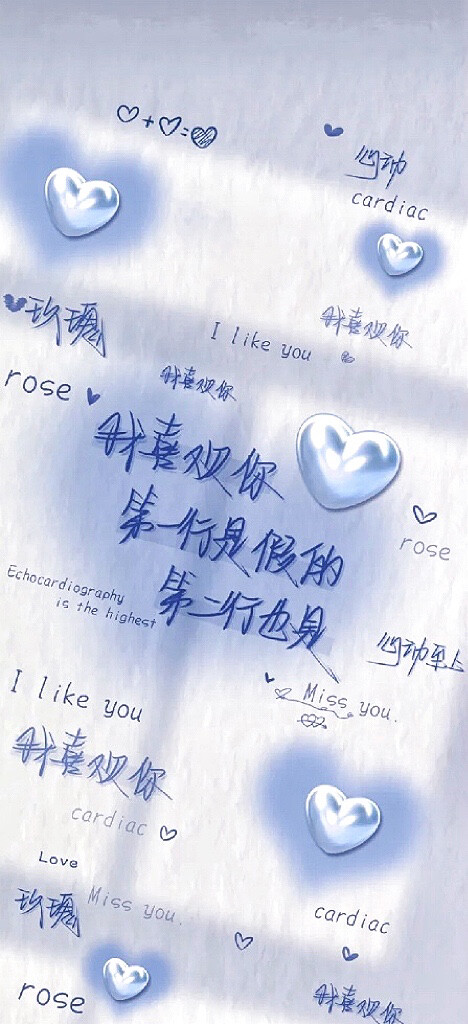 心动
cardiac
我喜欢你
玫瑰
I like you
rose
我喜欢你
我喜欢你
第一行是假的
rose
第二行也是
Echocardiography
is the highest
心动至上
I like you
Miss you.
我喜欢你
cardiac
Love
玫瑰
Miss you.
cardiac
rose
我喜欢你